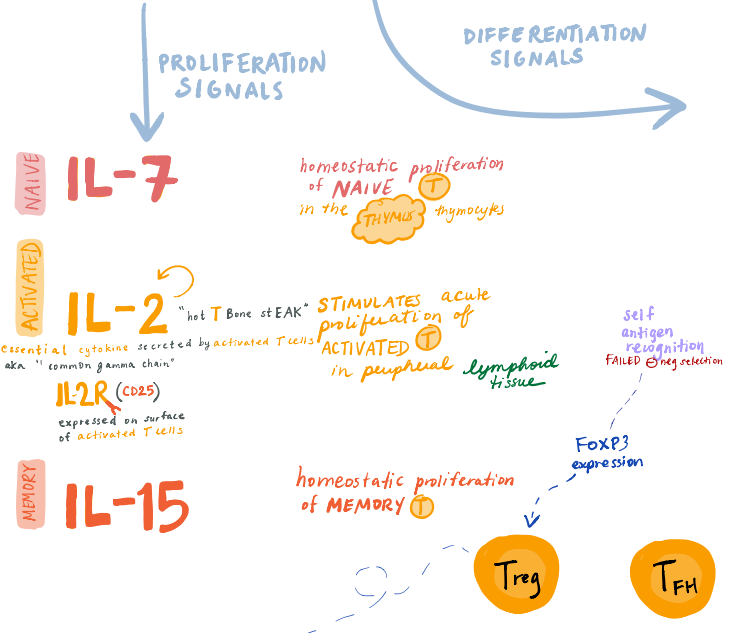 PROLIFERATION
SIGNALS
DIFFERENTIATION
SIGNALS
NAIVE
IL-7
homeostatic proliferation
of NAIVE T
in the THYMUS thymocytes
ACTIVATED
IL-2
"hot T Bone stEAK"
essential cytokine secreted by activated T cells
aka "common gamma chain"
IL-2R (CD25)
expressed on surface
of activated T cells
STIMULATES acute
proliferation of
ACTIVATED T
in peripheral lymphoid
tissue
self
antigen
recognition
FAILED neg selection
FOXP3
expression
MEMORY
IL-15
homeostatic proliferation
of MEMORY T
Treg
TFH